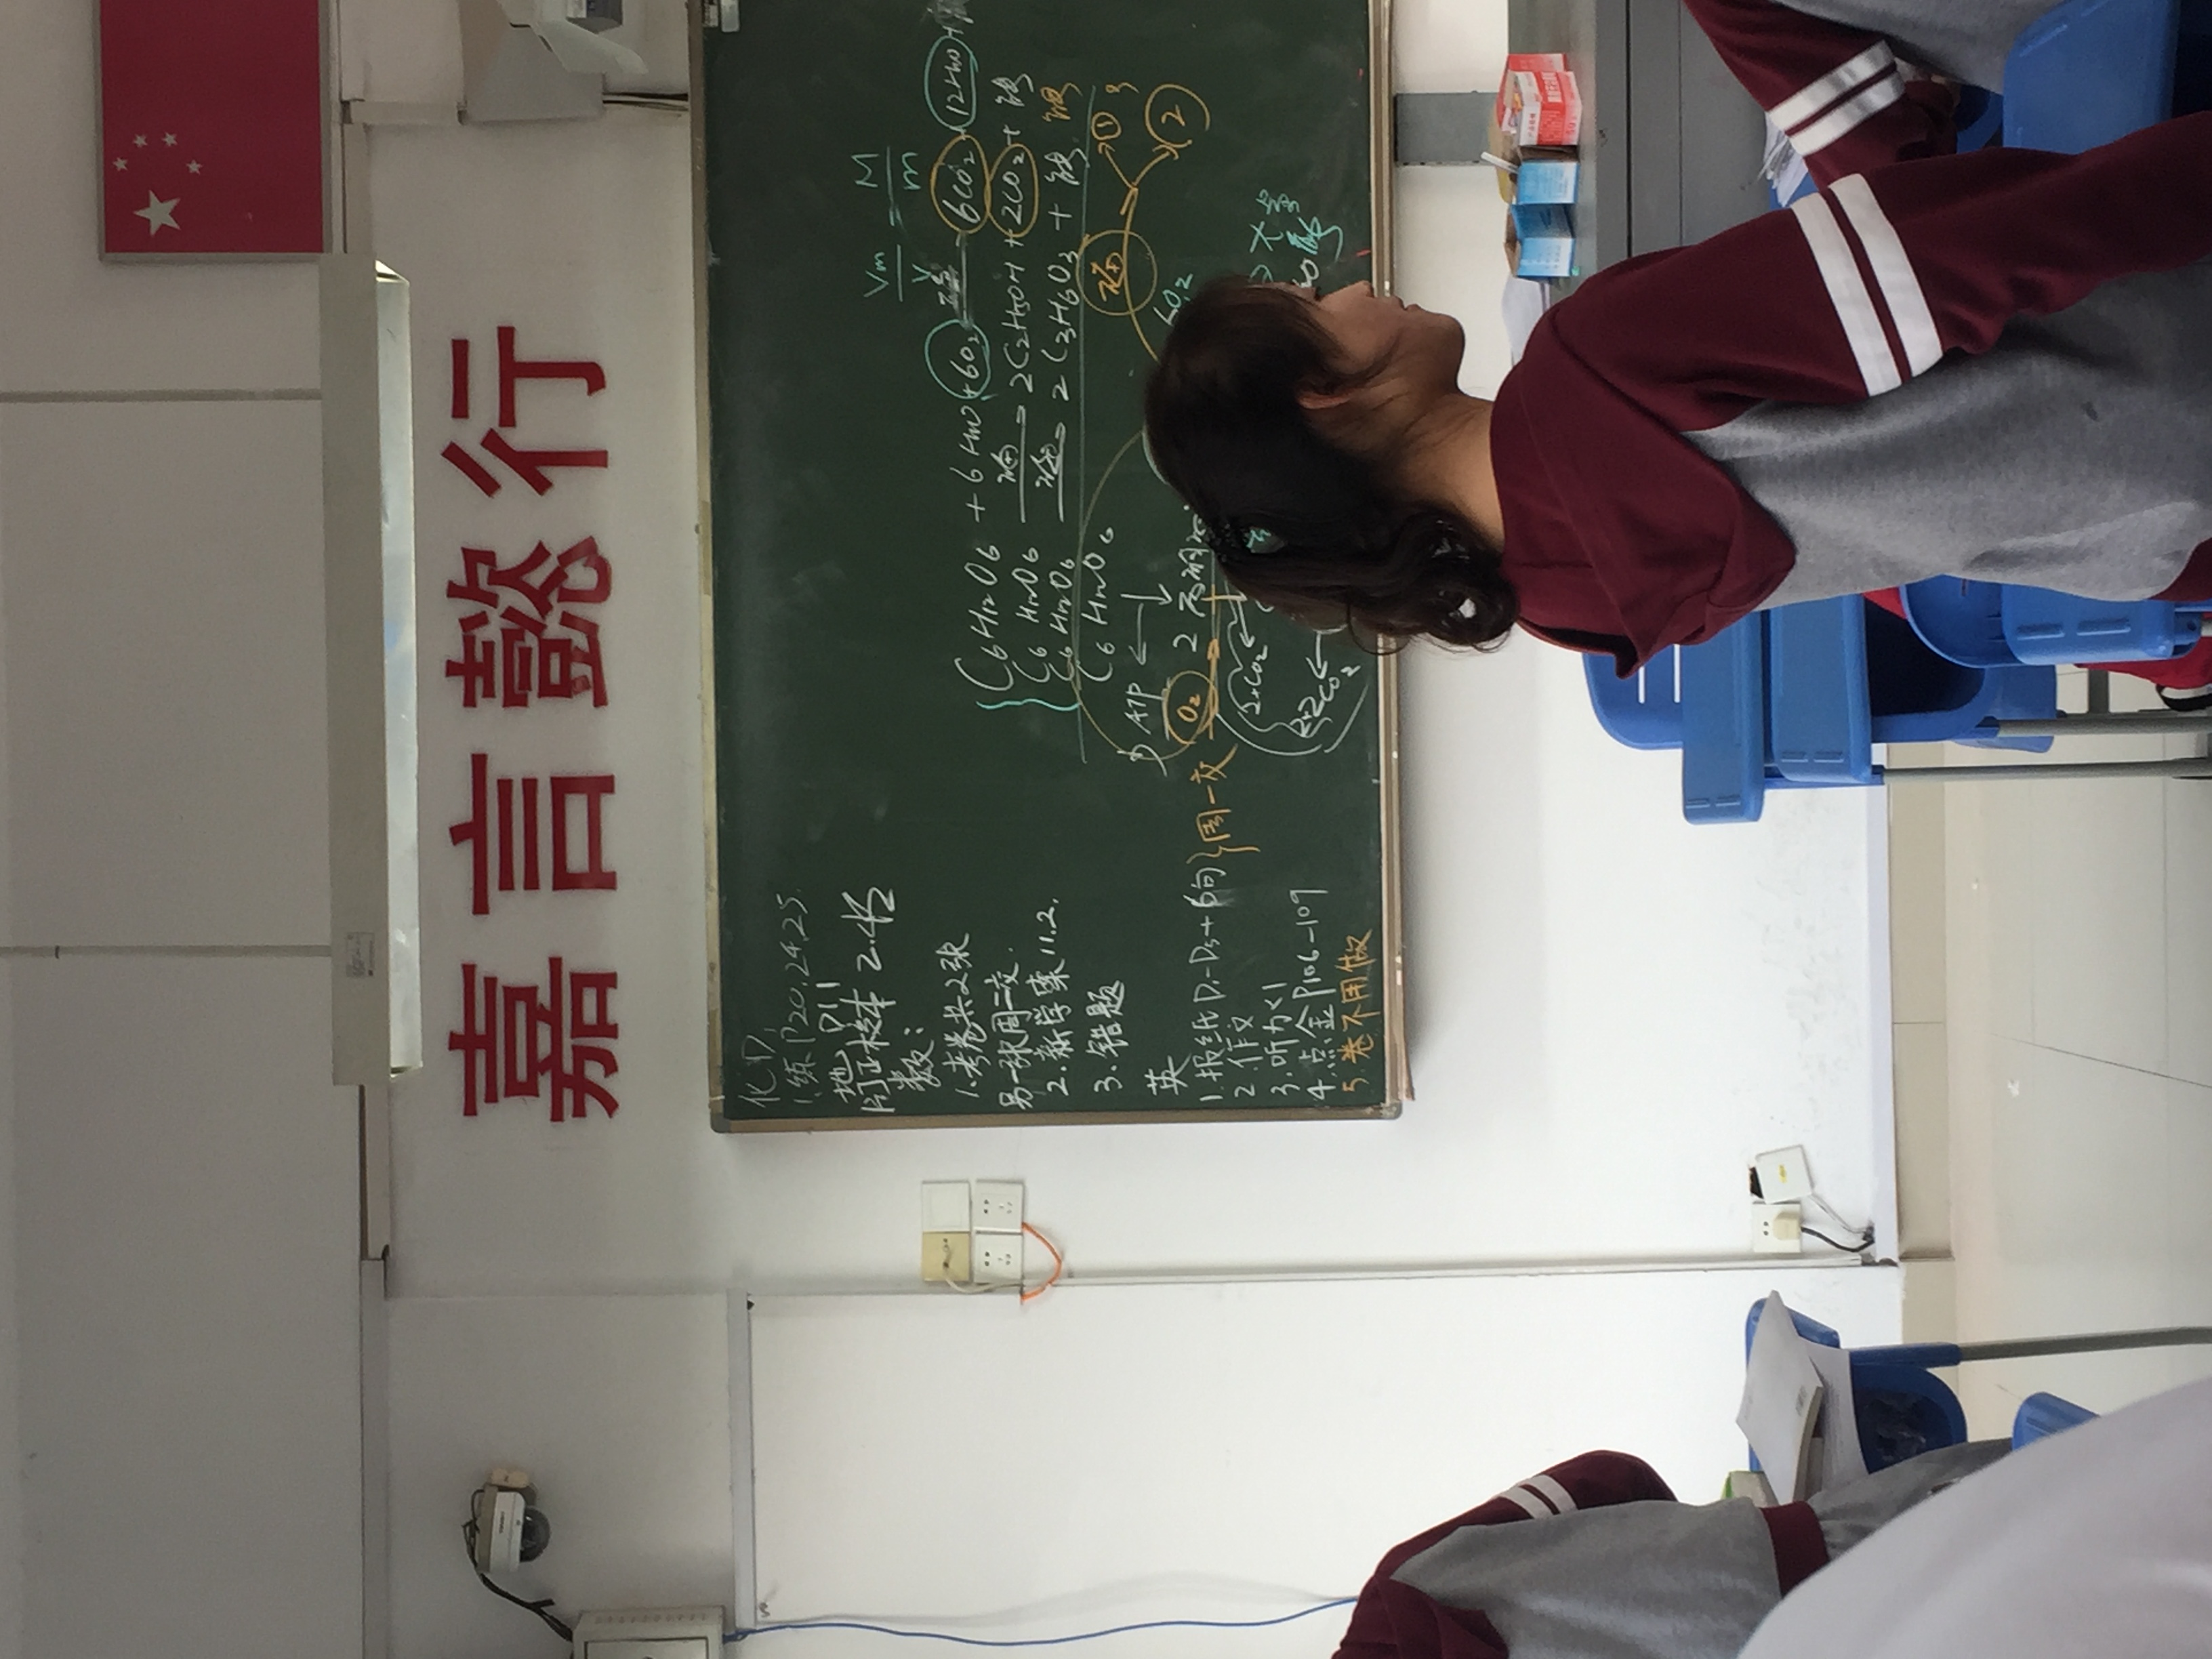 嘉言懿行
化 D1
1.练 P20.24.25.
地 P11
订正校本 2.4
数:
1.考卷共2张
另一张周二交.
2.新学案 11.2.
3.错题
英
1.报纸 D1-D5+6句 }周一交
2.作文
3.听力<1
4.点金 P106-109
5.卷不用做
Vm/V = M/m
C6H12O6 + 6H2O + 6O2 酶 6CO2 + 12H2O +
C6H12O6 酶 2C2H5OH + 2CO2 + 能
C6H12O6 酶 2C3H6O3 + 能
C6H12O6
ATP
酶
①
②
O2
2
6O2
2×CO2
大量
能
2×2CO2